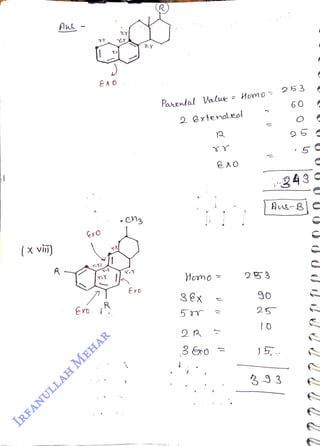 Ans -
R
γγ
γγ
γγ
γγ
EXO
Parental Value = Homo = 253
2 extended = 60
R 0
γγ = 25
EXO = .5
343
Ans-B
(xviii)
CH3
EXO
R
γγ
γγ
γγ
γγ
EXO
EXO
R
Homo = 253
3 Ex = 90
5 γγ = 25
2 R = 10
3 EXO = 15
393
IRFANULLAH MEHAR